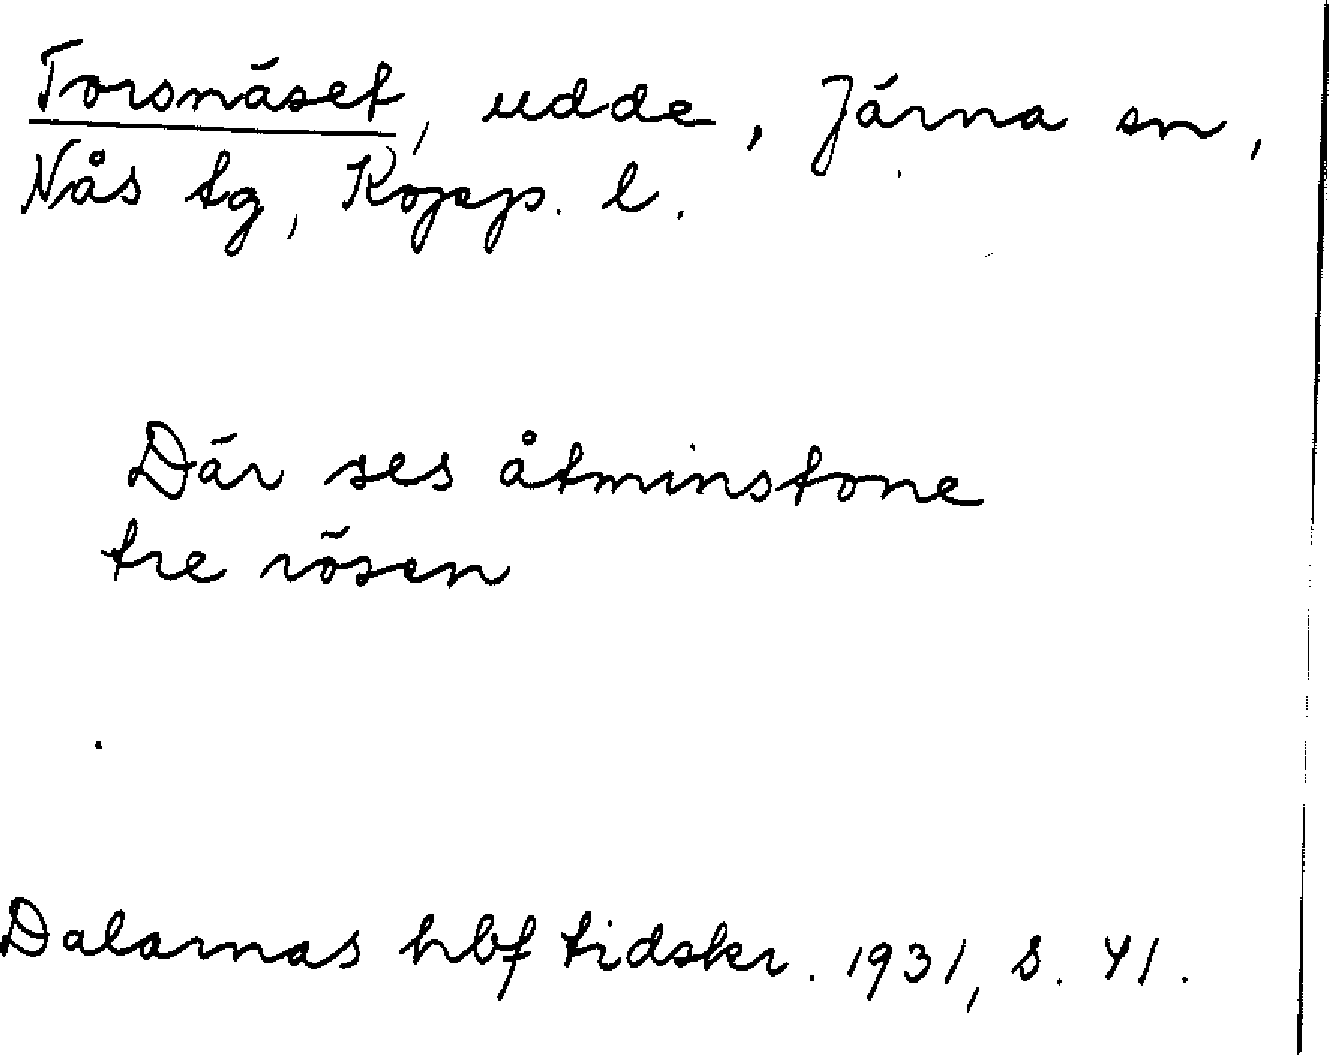 Torsnäset, udde, Järna sn,
Nås tg, Kopp. l.
Där ses åtminstone
tre rösen
Dalarnas hbf tidskr. 1931, s. 41.